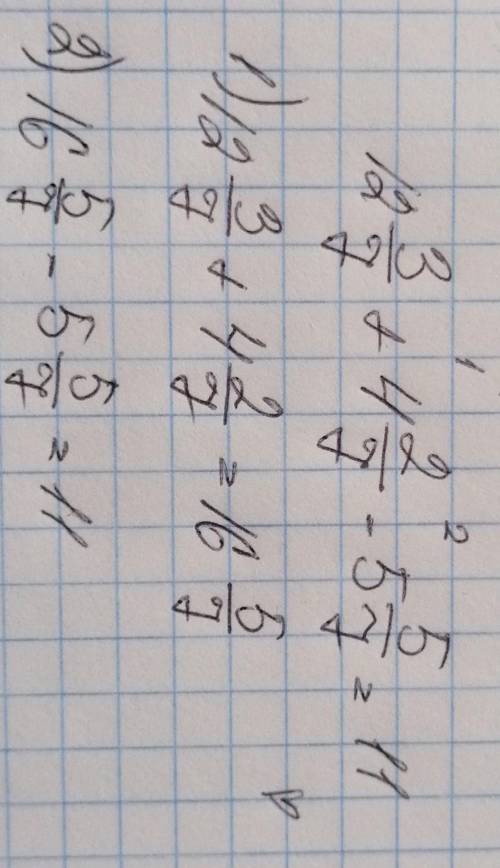 1 2
12 3/7 + 4 2/7 - 5 5/7 = 11
1) 12 3/7 + 4 2/7 = 16 5/7
2) 16 5/7 - 5 5/7 = 11